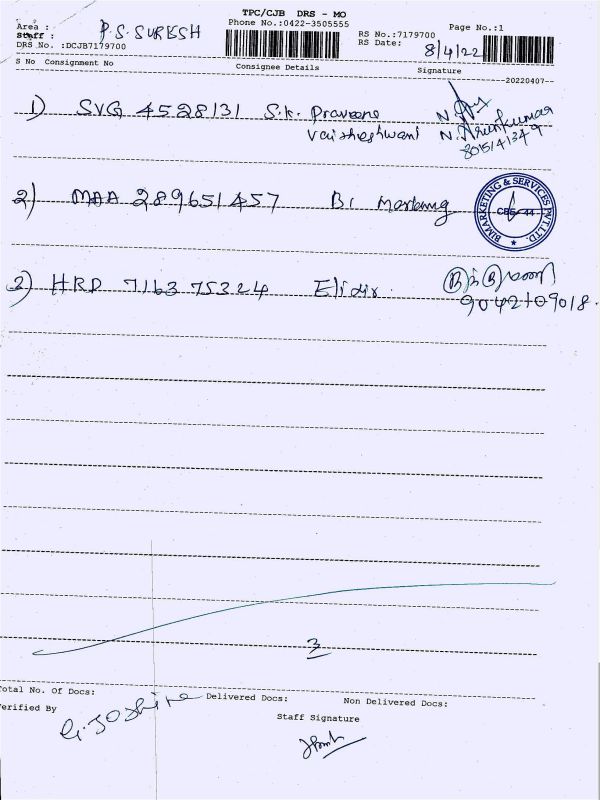 TPC/CJB DRS - MO
Area :
Phone No.:0422-3505555
Page No.:1
Staff :
P.S. SURESH
RS No.:7179700
DRS No. :DCJB7179700
RS Date:
8/4/22
S No Consignment No
Consignee Details
Signature
20220407
1) SVG 4528131 S.K. Praveena
Vaitheshwani
N. Arunkumar
8015141349
2) MAA 289651457 Bi Marketing
BIMARKETING & SERVICES PVT LTD.
CBE-44
HRD 716375324
3
Total No. Of Docs:
Delivered Docs:
Non Delivered Docs:
Verified By
Staff Signature